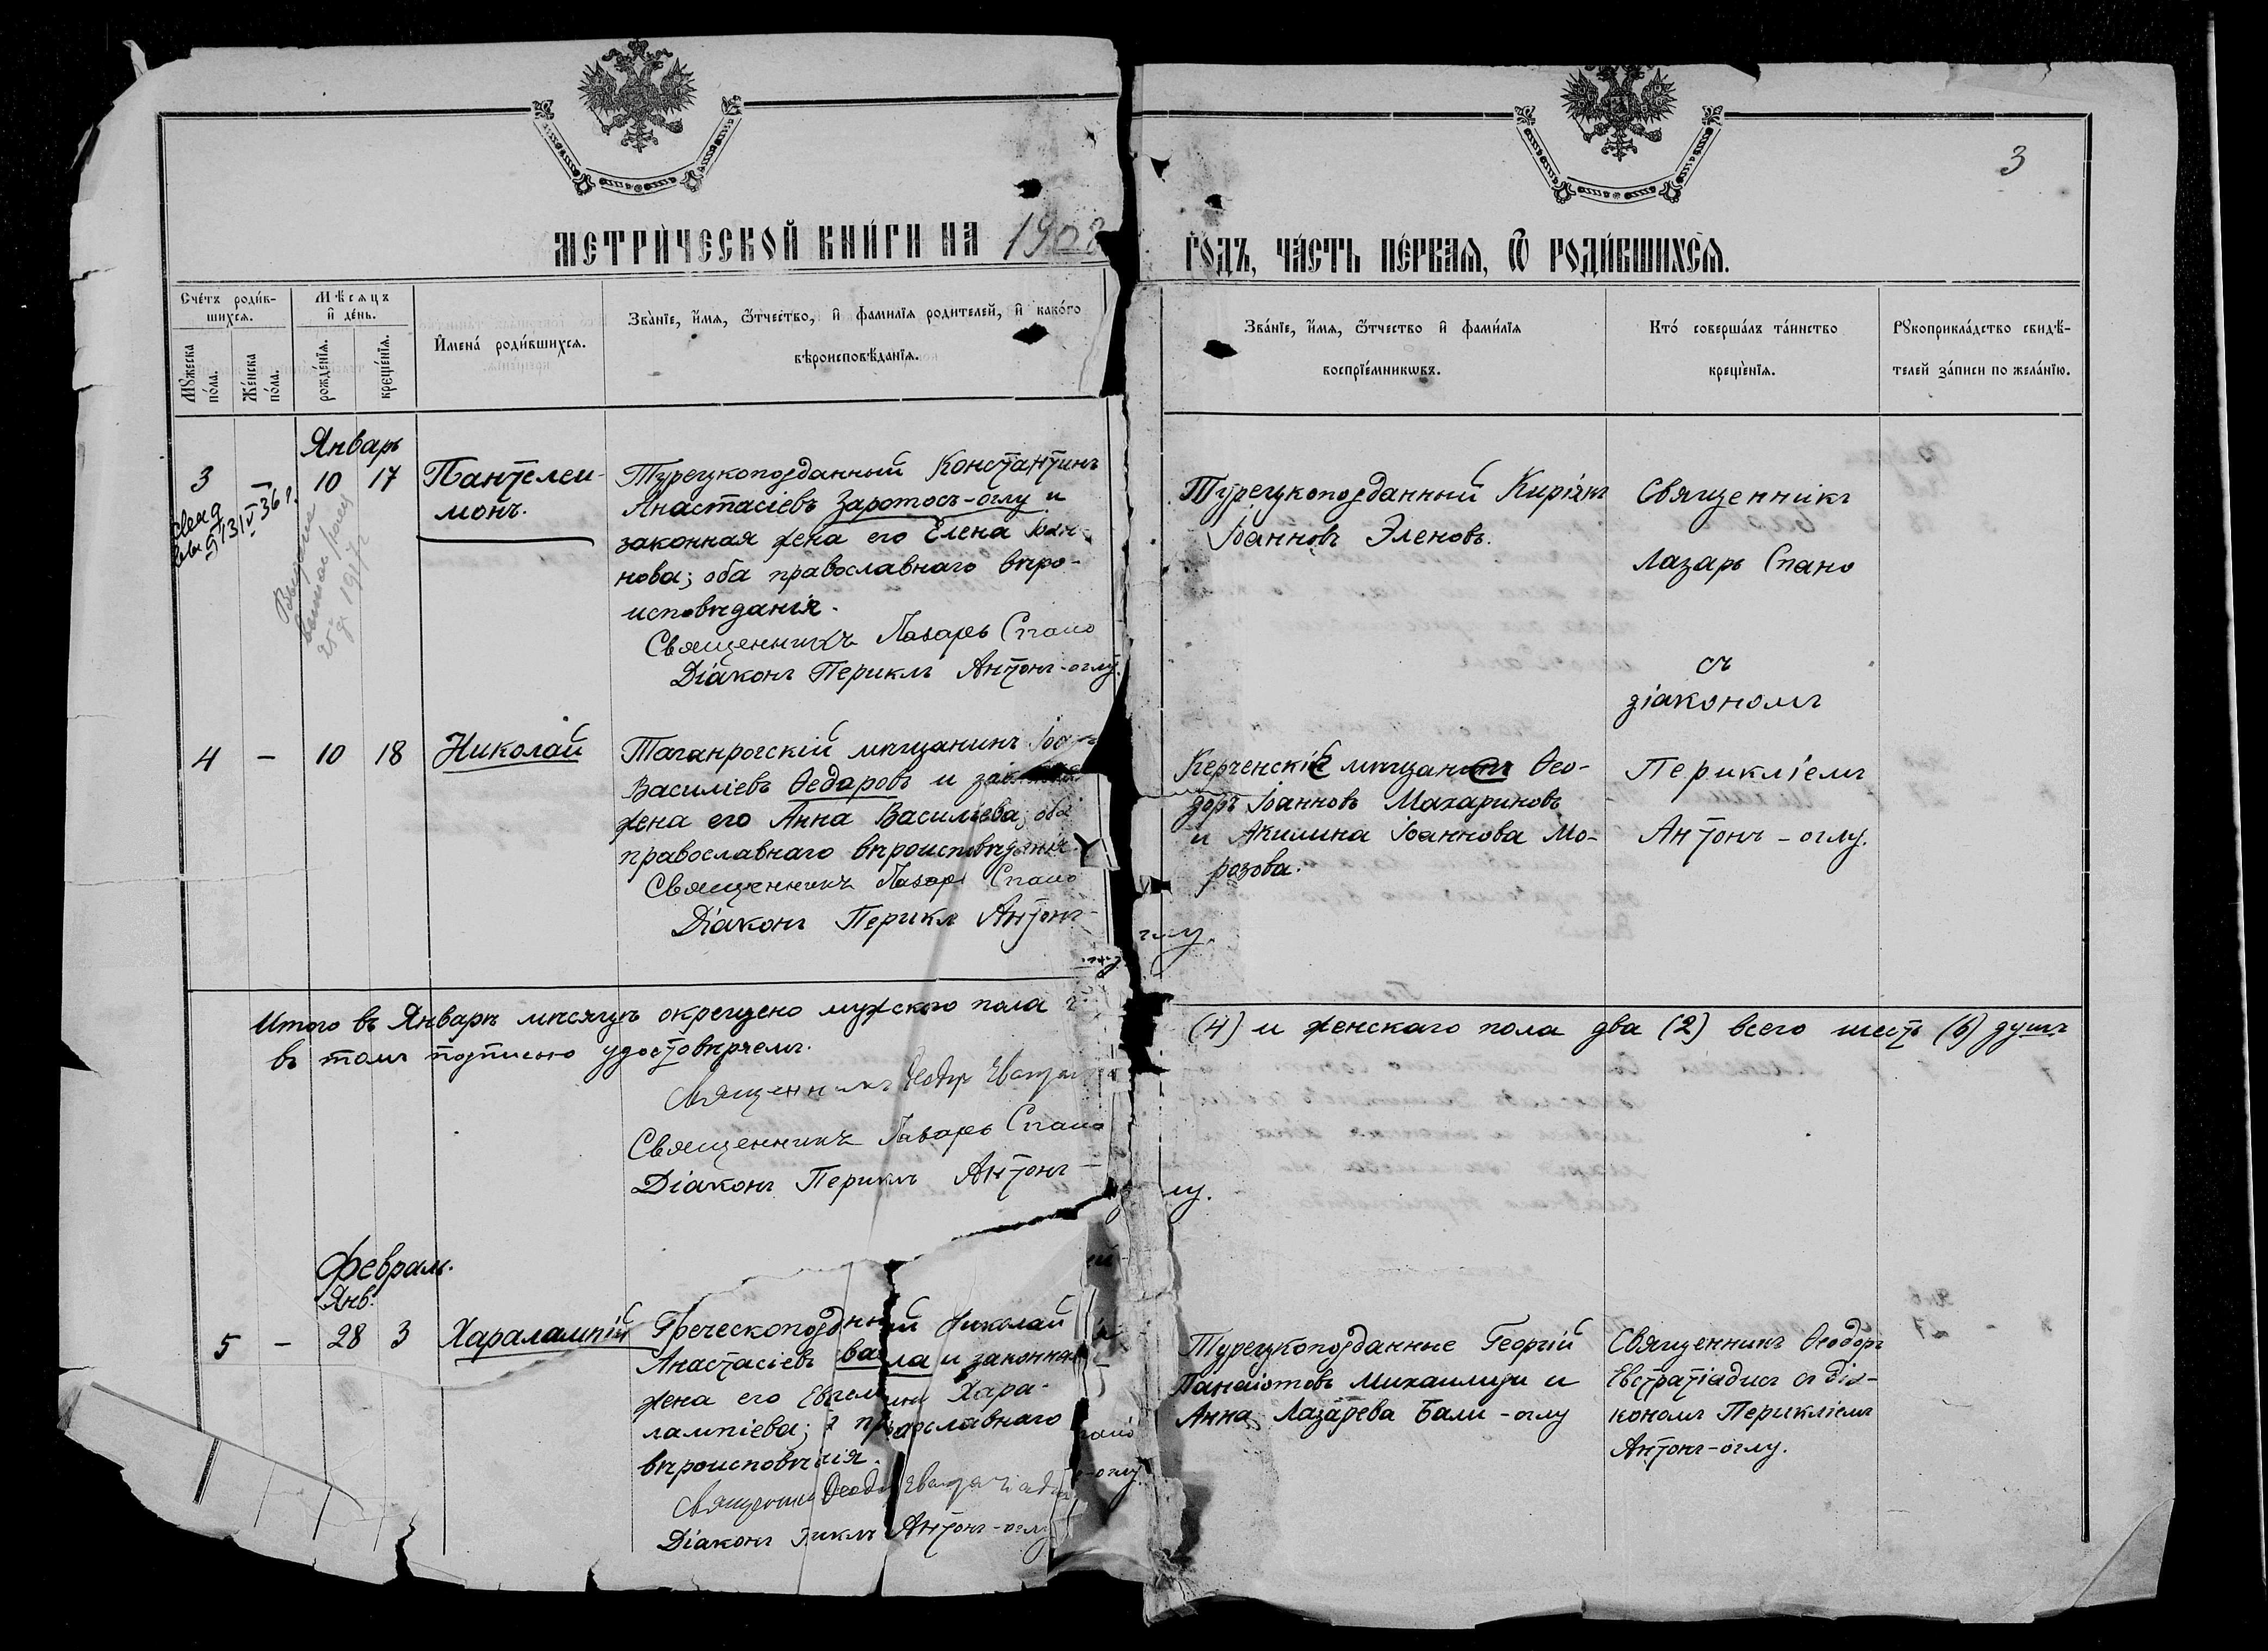 3
МЕТРИ́ЧЕСКОЙ КНИ́ГИ НА 1908
ГО́ДЪ, ЧА́СТЬ ПЕ́РВАЯ, Ѿ РОДИ́ВШИХСЯ.
Сче́тъ роди́в-
шихся.
Мꙋ́жеска
по́ла.
Же́нска
по́ла.
Мѣ́сяцъ
и҆ де́нь.
рожде́нїя.
креще́нїя.
И҆мена́ роди́вшихся.
Зва́нїе, и҆́мя, ѻ҆́тчество, и҆ фами́лїя роди́телей, и҆ како́го
вѣроисповѣ́данїя.
Зва́нїе, и҆́мя, ѻ҆́тчество и҆ фами́лїя
воспрїе́мникѡвъ.
Кто́ соверша́лъ та́инство
креще́нїя.
Рꙋкоприкла́дство свидѣ́-
телей за́писи по жела́нїю.
Январь
3
–
10
17
Пантелеи-
монъ.
Турецкоподданный Константинъ
Анастасіевъ Заротосъ-оглу и
законная жена его Елена Іоан-
нова; оба православнаго вѣро-
исповѣданія.
Священникъ Лазарь Спано
Діаконъ Периклъ Антонъ-оглу.
Турецкоподданный Киріякъ
Іоанновъ Эленовъ.
Священникъ
Лазарь Спано
съ
діакономъ
Перикліемъ
Антонъ-оглу.
1917 г
4
–
10
18
Николай
Таганрогскій мѣщанинъ
Василіевъ Ѳедоровъ и
жена его Анна Василіева; оба
православнаго вѣроисповѣданія.
Священникъ Лазарь Спано
Діаконъ Периклъ Антонъ-
оглу.
Керченскій мѣщанинъ Ѳео-
доръ Іоанновъ Махариновъ
и Акилина Іоаннова Мо-
розова.
Итого въ Январѣ мѣсяцѣ окрещено мужского пола
(4) и женскаго пола два (2) всего шесть (6) душъ
въ томъ подписью удостовѣряемъ.
Священникъ Ѳеодоръ
Священникъ Лазарь Спано
Діаконъ Периклъ Антонъ-
Февраль.
Янв.
5
–
28
3
Харалампій
Греческоподданный Николай
Анастасіевъ и законная
жена его Хара-
лампіева; православнаго
Діаконъ Антонъ-оглу
Турецкоподданные Георгій
Панаіотовъ Михаилиди и
Анна Лазарева Бали-оглу
Священникъ Ѳеодоръ
Евстратіадисъ съ діа-
кономъ Перикліемъ
Антонъ-оглу.